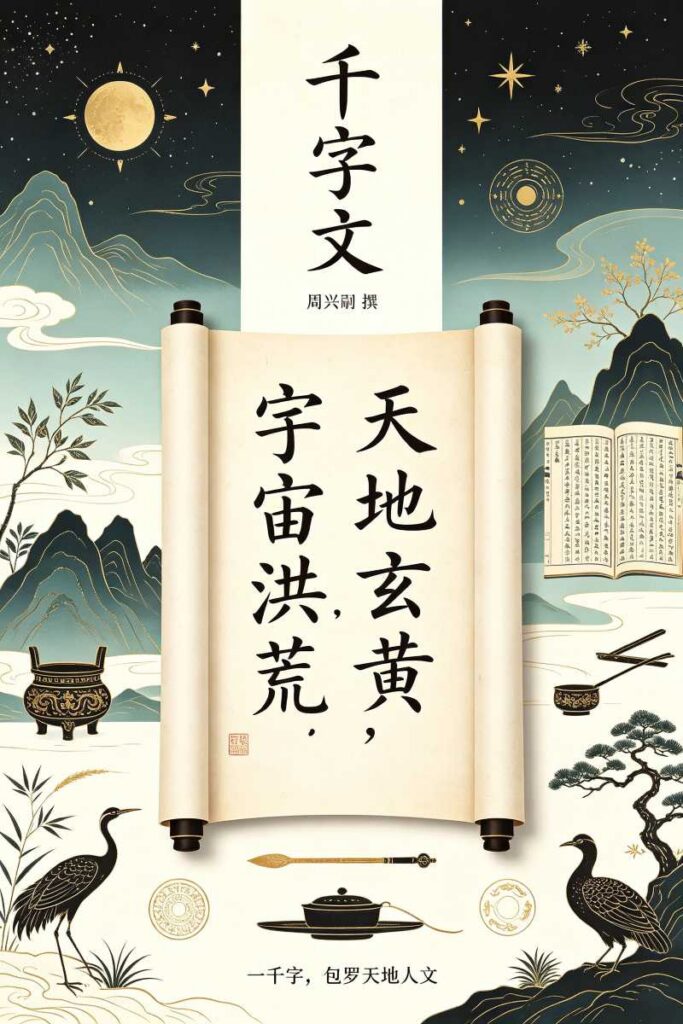 千字文
周兴嗣 撰
天地玄黄，
宇宙洪，荒．
一千字，包罗天地人文